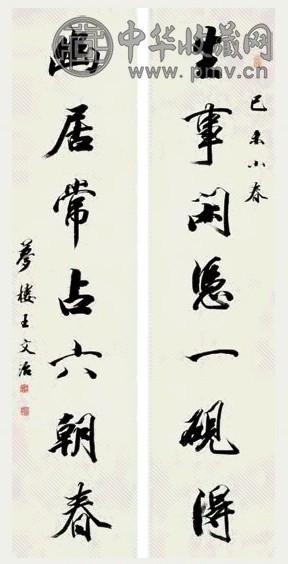 中华收藏网
www.pmv.cn
己未小春
生事閑憑一硯得
幽居常占六朝春
夢樓王文治